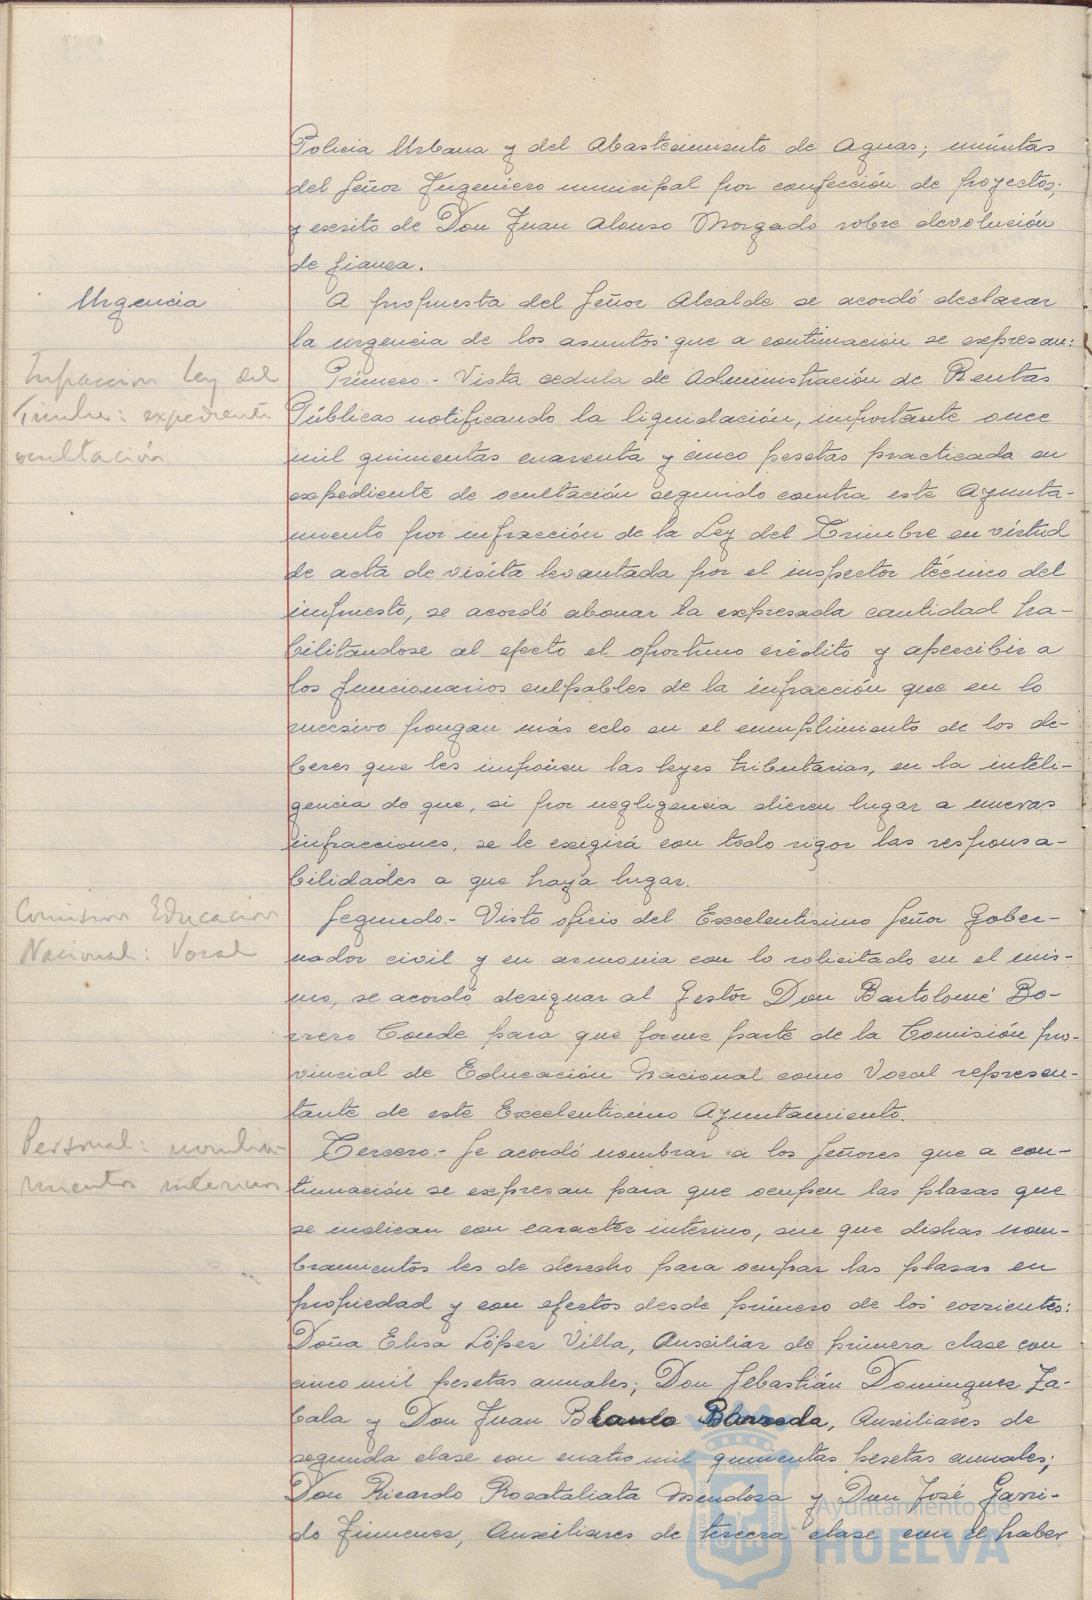 Policia Urbana y del Abastecimiento de Aguas; minutas
del Señor Ingeniero municipal por confección de proyectos;
y escrito de Don Juan Alonso Morgado sobre devolución
de fianza.
Urgencia
A propuesta del Señor Alcalde se acordó declarar
la urgencia de los asuntos que a continuación se expresan:
Infraccion Ley del
Timbre: expediente
ocultación
Primero.- Vista cedula de Administración de Rentas
Públicas notificando la liquidación, importante once
mil quinientas cuarenta y cinco pesetas practicada en
expediente de ocultación seguido contra este Ayunta-
miento por infracción de la Ley del Trimbre en virtud
de acta de visita levantada por el inspector técnico del
impuesto, se acordó abonar la expresada cantidad ha-
bilitandose al efecto el oportuno crédito y apercibir a
los funcionarios culpables de la infracción que en lo
sucesivo pongan más celo en el cumplimiento de los de-
beres que les imponen las leyes tributarias, en la inteli-
gencia de que, si por negligencia dieren lugar a nuevas
infracciones, se le exigirá con todo rigor las responsa-
bilidades a que haya lugar.
Comision Educacion
Nacional: Vocal
Segundo.- Visto oficio del Excelentisimo Señor Gober-
nador civil y en armonia con lo solicitado en el mis-
mo, se acordó designar al Gestor Don Bartolomé Bo-
rrero Conde para que forme parte de la Comisión pro-
vincial de Educación Nacional como Vocal represen-
tante de este Excelentisimo Ayuntamiento.
Personal: nombra-
mientos interinos
Tercero.- Se acordó nombrar a los Señores que a con-
tinuación se expresan para que ocupen las plazas que
se indican con caracter interino, sin que dichas nom-
bramientos les de derecho para ocupar las plazas en
propiedad y con efectos desde primero de los corrientes:
Doña Elisa López Villa, Auxiliar de primera clase con
cinco mil pesetas anuales; Don Sebastián Dominguez Za-
bala y Don Juan Blanco Barreda, Auxiliares de
segunda clase con cuatro mil quinientas pesetas anuales;
Don Ricardo Rocataliata Mendoza y Don José Garri-
do Jimenez, Auxiliares de tercera clase con el haber
Ayuntamiento de
HUELVA